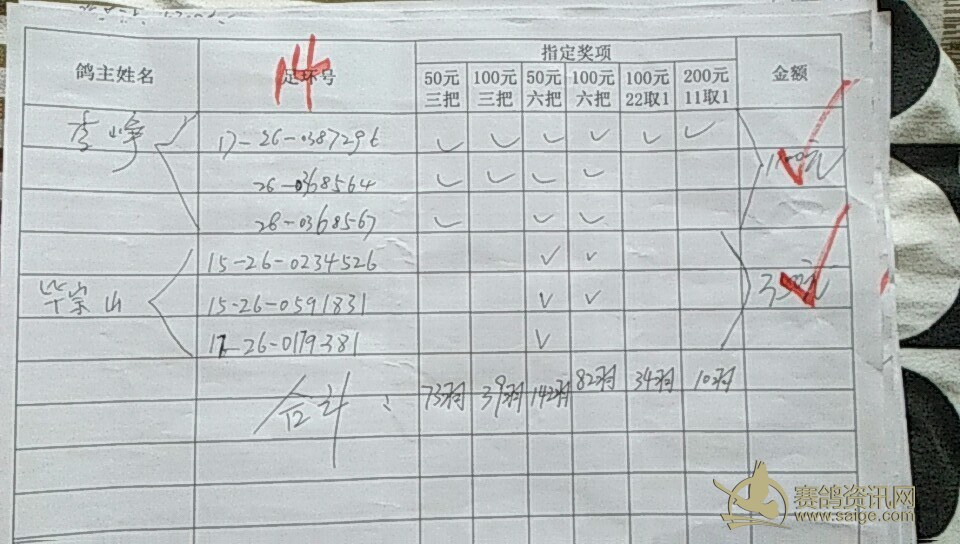 鸽主姓名 足环号 指定奖项 金额
50元三把 100元三把 50元六把 100元六把 100元22取1 200元11取1
14
李峥 17-26-0387296 ✓ ✓ ✓ ✓ ✓ ✓
26-0368564 ✓ ✓ ✓ ✓
26-0368567 ✓ ✓ ✓
15-26-0234526 ✓ ✓
毕宗山 15-26-0591831 ✓ ✓ 350元
17-26-0179381 ✓
合计: 73羽 39羽 142羽 82羽 34羽 10羽
赛鸽资讯网
www.saige.com